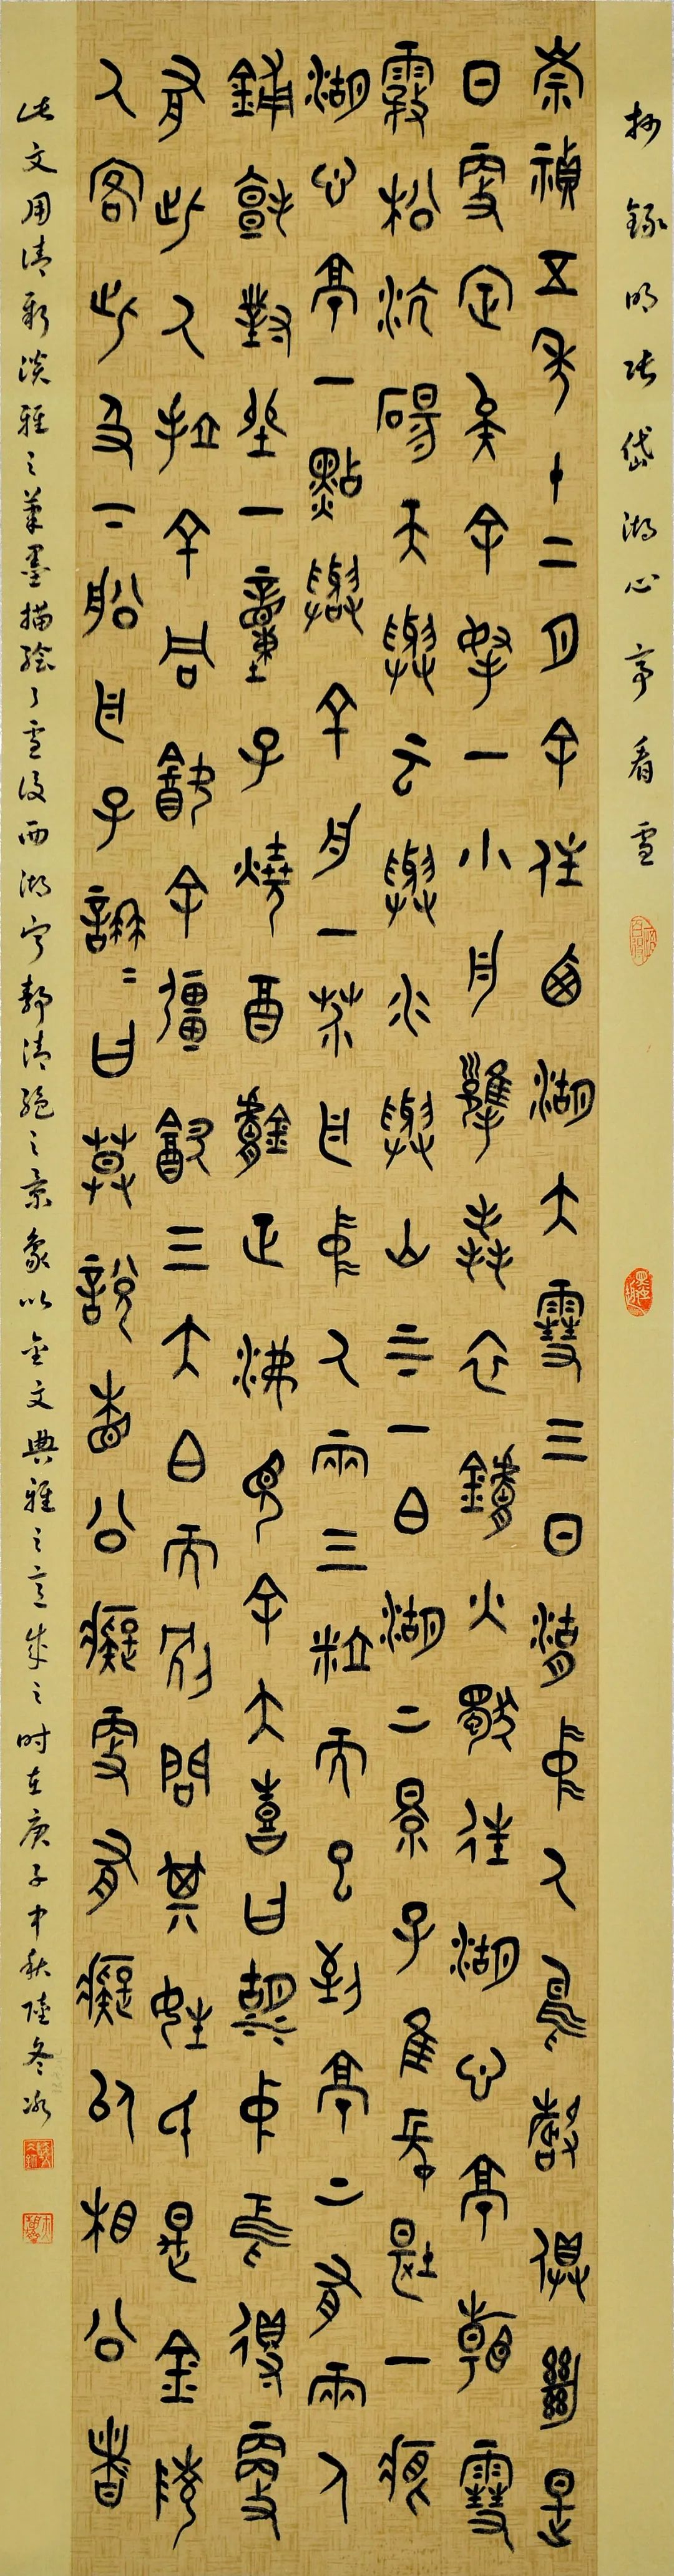 抄錄明張岱湖心亭看雪
崇禎五年十二月余住西湖大雪三日湖中人鳥聲俱絕是
日更定矣余拏一小舟擁毳衣鑪火獨往湖心亭看雪
霧松沆碭天與云與水與山上下一白湖上景子隹長堤一痕
湖心亭一點與余舟一芥舟中人兩三粒而已到亭上有兩人
鋪氈對坐一童子燒酉鑪正沸見余大喜曰湖中焉得更
有此人拉余同飲余彊飲三大白而別問其姓氏是金陵
人客此及下船舟子喃喃曰莫說相公癡更有癡似相公者
此文用清新淡雅之筆墨描繪了雪後西湖寧靜清絕之景象以金文典雅之意成之時在庚子中秋陸冬